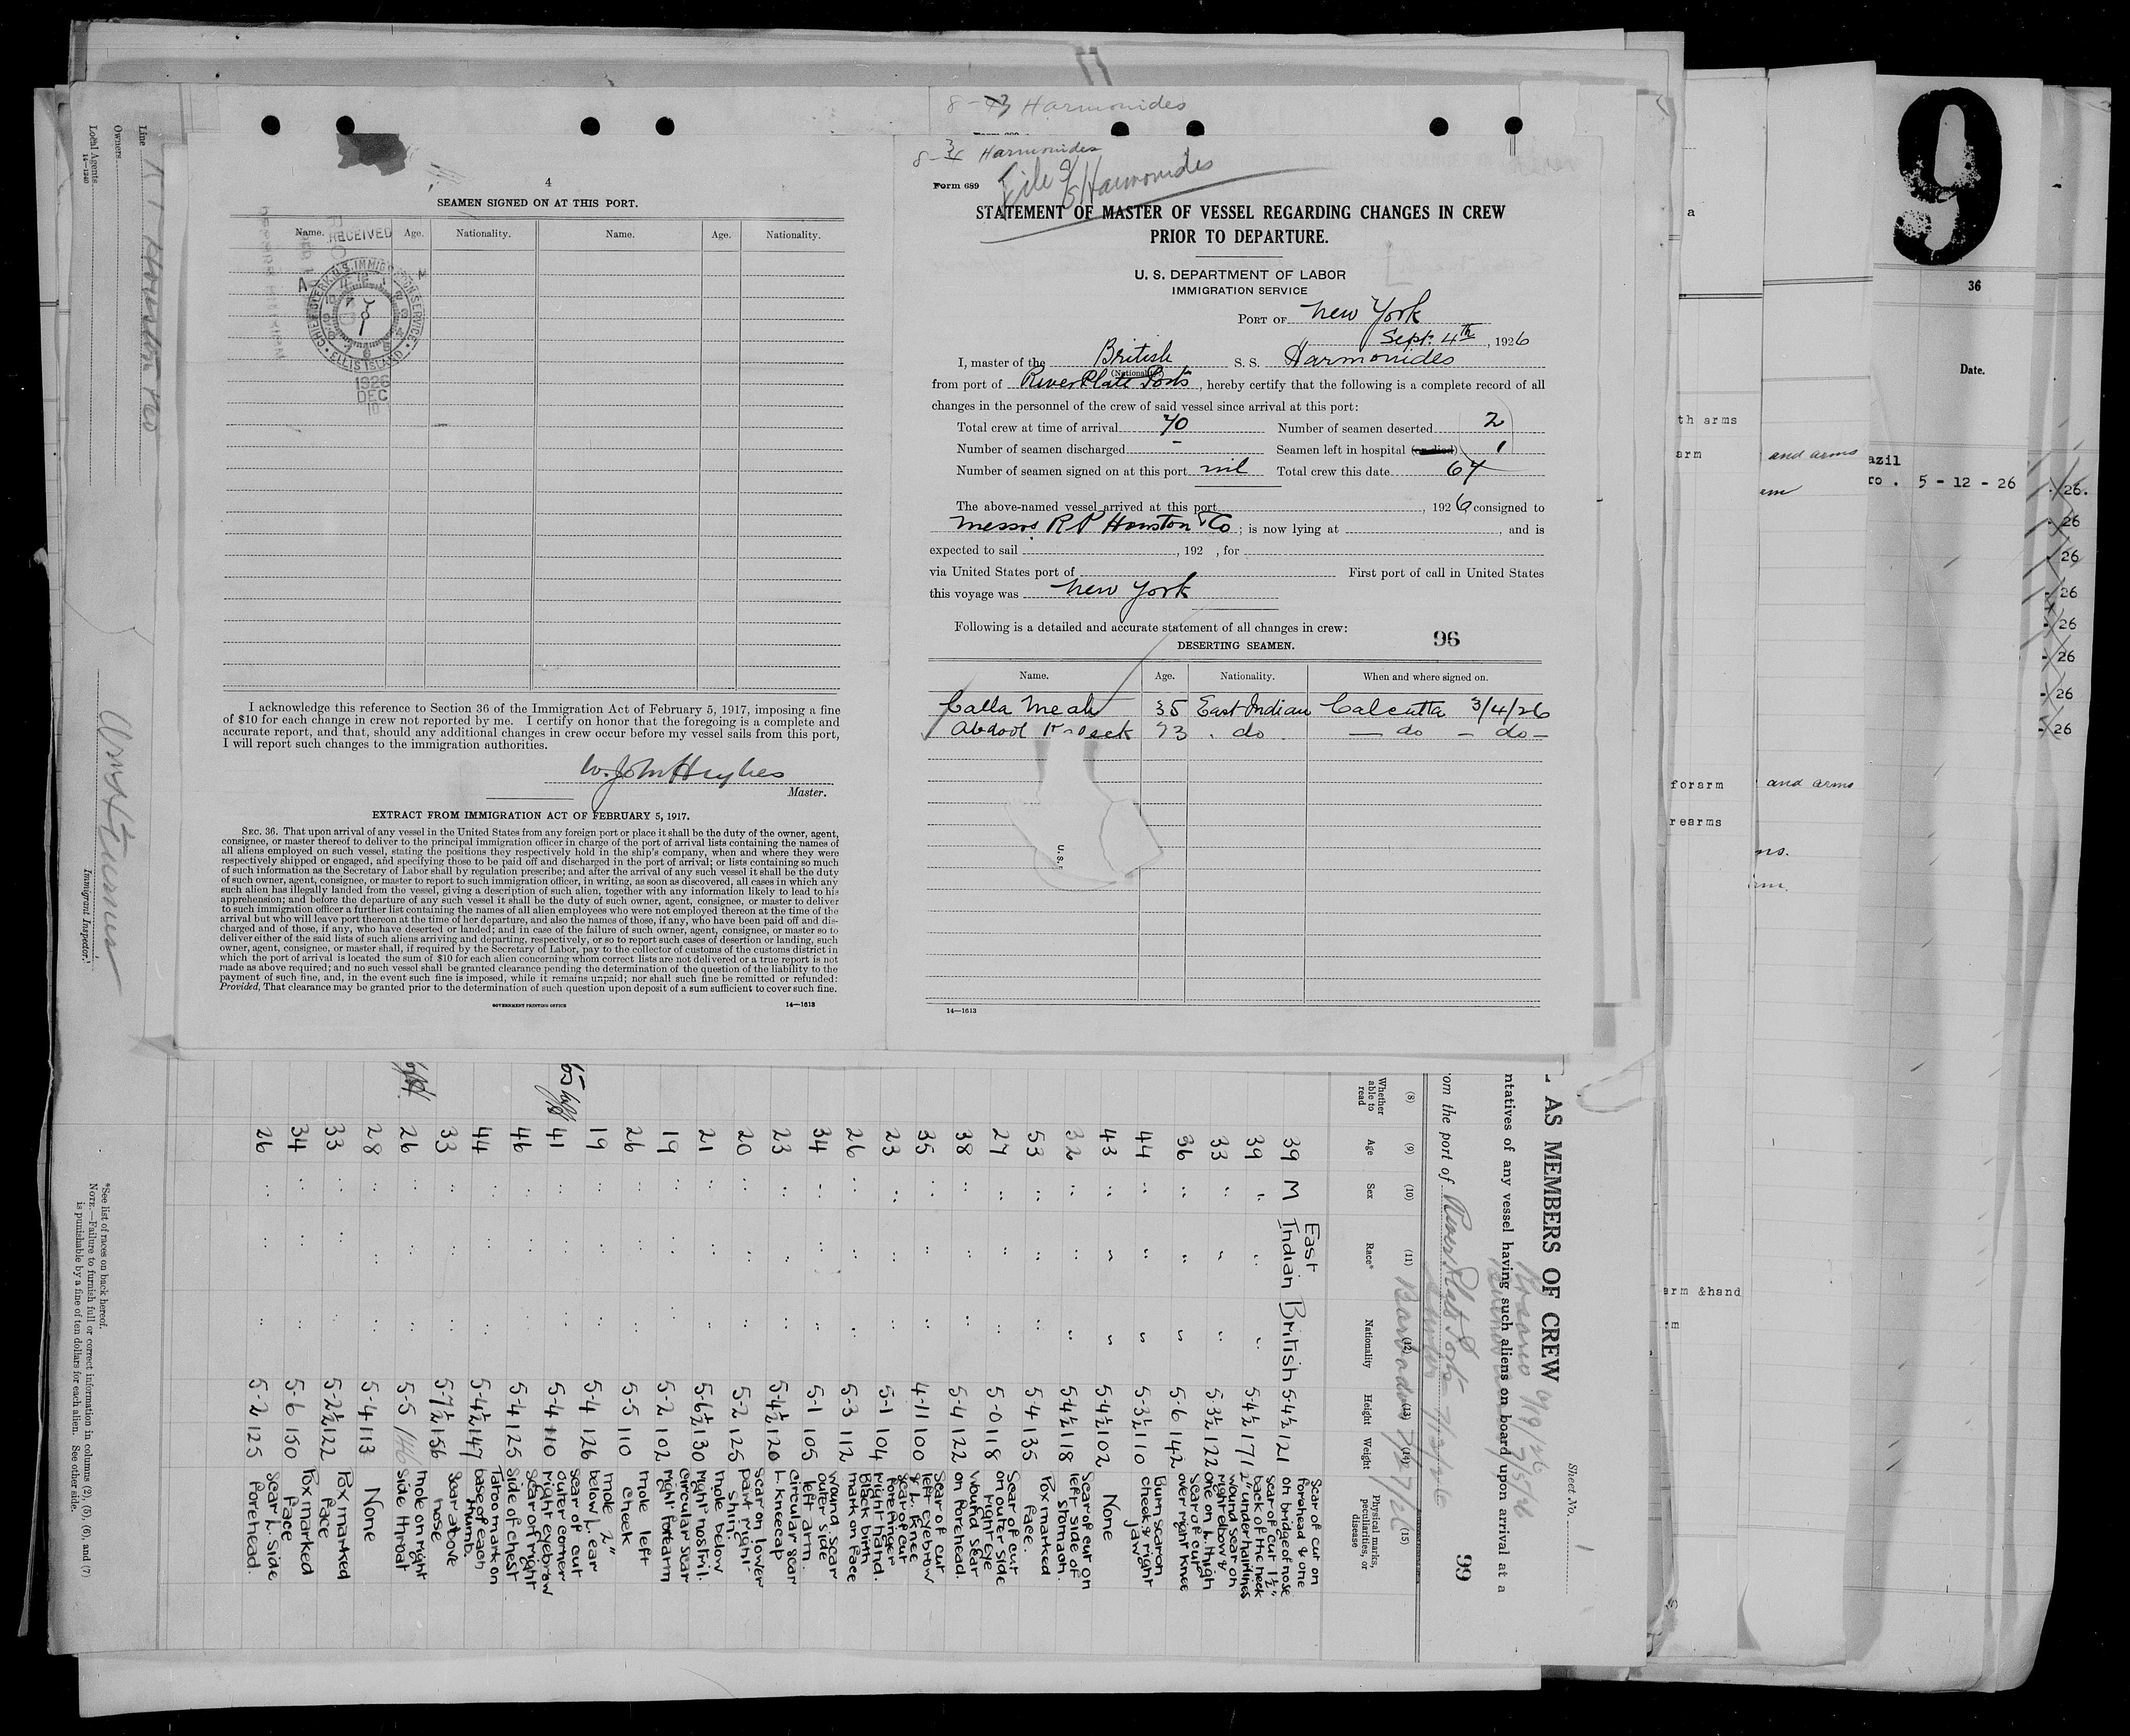 8-3 Harmonides
8-3 Harmonides
File S/S Harmonides
Form 689
STATEMENT OF MASTER OF VESSEL REGARDING CHANGES IN CREW
PRIOR TO DEPARTURE.
U. S. DEPARTMENT OF LABOR
IMMIGRATION SERVICE
PORT OF New York
Sept. 4th, 1926
I, master of the British S. S. Harmonides
(Nationality)
from port of River Plate Ports, hereby certify that the following is a complete record of all
changes in the personnel of the crew of said vessel since arrival at this port:
Total crew at time of arrival 70 Number of seamen deserted 2
Number of seamen discharged - Seamen left in hospital (or died) 1
Number of seamen signed on at this port nil Total crew this date 67
The above-named vessel arrived at this port , 1926, consigned to
Messrs R P Houston & Co; is now lying at , and is
expected to sail , 192 , for
via United States port of First port of call in United States
this voyage was New York
Following is a detailed and accurate statement of all changes in crew:
96
DESERTING SEAMEN.
Name. Age. Nationality. When and where signed on.
Calla Meah 35 East Indian Calcutta 3/4/26
Abdool do do - do -
U. S.
14—1613
4
SEAMEN SIGNED ON AT THIS PORT.
Name. Age. Nationality. Name. Age. Nationality.
RECEIVED
CHIEF CLERK, U.S. IMMIGRATION SERVICE
ELLIS ISLAND
1926
DEC
10
I acknowledge this reference to Section 36 of the Immigration Act of February 5, 1917, imposing a fine
of $10 for each change in crew not reported by me. I certify on honor that the foregoing is a complete and
accurate report, and that, should any additional changes in crew occur before my vessel sails from this port,
I will report such changes to the immigration authorities.
W. John Hughes
Master.
EXTRACT FROM IMMIGRATION ACT OF FEBRUARY 5, 1917.
SEC. 36. That upon arrival of any vessel in the United States from any foreign port or place it shall be the duty of the owner, agent,
consignee, or master thereof to deliver to the principal immigration officer in charge of the port of arrival lists containing the names of
all aliens employed on such vessel, stating the positions they respectively hold in the ship's company, when and where they were
respectively shipped or engaged, and specifying those to be paid off and discharged in the port of arrival; or lists containing so much
of such information as the Secretary of Labor shall by regulation prescribe; and after the arrival of any such vessel it shall be the duty
of such owner, agent, consignee, or master to report to such immigration officer, in writing, as soon as discovered, all cases in which any
such alien has illegally landed from the vessel, giving a description of such alien, together with any information likely to lead to his
apprehension; and before the departure of any such vessel it shall be the duty of such owner, agent, consignee, or master to deliver
to such immigration officer a further list containing the names of all alien employees who were not employed thereon at the time of the
arrival but who will leave port thereon at the time of her departure, and also the names of those, if any, who have been paid off and dis-
charged and of those, if any, who have deserted or landed; and in case of the failure of such owner, agent, consignee, or master so to
deliver either of the said lists of such aliens arriving and departing, respectively, or so to report such cases of desertion or landing, such
owner, agent, consignee, or master shall, if required by the Secretary of Labor, pay to the collector of customs of the customs district in
which the port of arrival is located the sum of $10 for each alien concerning whom correct lists are not delivered or a true report is not
made as above required; and no such vessel shall be granted clearance pending the determination of the question of the liability to the
payment of such fine, and, in the event such fine is imposed, while it remains unpaid; nor shall such fine be remitted or refunded:
Provided, That clearance may be granted prior to the determination of such question upon deposit of a sum sufficient to cover such fine.
GOVERNMENT PRINTING OFFICE
14—1613
Sheet No. 1
AS MEMBERS OF CREW
ntatives of any vessel having such aliens on board upon arrival at a
om the port of River Plate Ports
99
(8) (9) (10) (11) (12) (13) (14) (15)
Whether able to read Age Sex Race* Nationality Height Weight Physical marks, peculiarities, or disease
39 M East Indian British 5-4½ 121 Scar of cut on forehead & one on bridge of nose
39 5-4½ 171 Scar of cut 1½" back of the neck 2" under hairlines
33 5-3½ 122 wound scar on right elbow & one on L. thigh
36 5-6 142 Scar of cut over right knee
44 5-3½ 110 Burn scar on cheek & right jaw
43 5-4½ 102 None
32 5-4½ 118 Scar of cut on left side of stomach.
53 5-4 135 Pox marked face.
27 5-0 118 Scar of cut on outer side right eye
38 5-4 122 Wound scar on forehead.
35 4-11 100 Scar of cut left eyebrow & L. knee
23 5-1 104 Scar of cut fore finger right hand.
26 5-3 112 Black birth mark on face
34 5-1 105 Wound scar outer side left arm.
23 5-4½ 120 Circular scar L. kneecap
20 5-2 125 Scar on lower part right shin.
21 5-6½ 130 mole below right nostril.
19 5-2 102 Circular scar right forearm
26 5-5 110 mole left cheek
19 5-4 126 mole 2" below L. ear
41 5-4 110 Scar of cut outer corner right eyebrow
46 5-4 125 Scar on right side of chest
44 5-4½ 147 Tatoo mark on base of each thumb.
33 5-7½ 156 Scar above nose
26 5-5 146 mole on right side throat
28 5-4 113 None
33 5-2½ 122 Pox marked face
34 5-6 150 Pox marked face
26 5-2 125 Scar L. side forehead.
*See list of races on back hereof.
NOTE.—Failure to furnish full or correct information in columns (2), (5), (6), and (7)
is punishable by a fine of ten dollars for each alien. See other side.
Line
Owners
Local Agents
14—1240
Immigrant Inspector.
9
36
Date.
a
th arms
arm
and arms
azil
ro . 5 - 12 - 26
26.
26
26
26
26
26
26
26
forarm
and arms
rearms
arm &hand